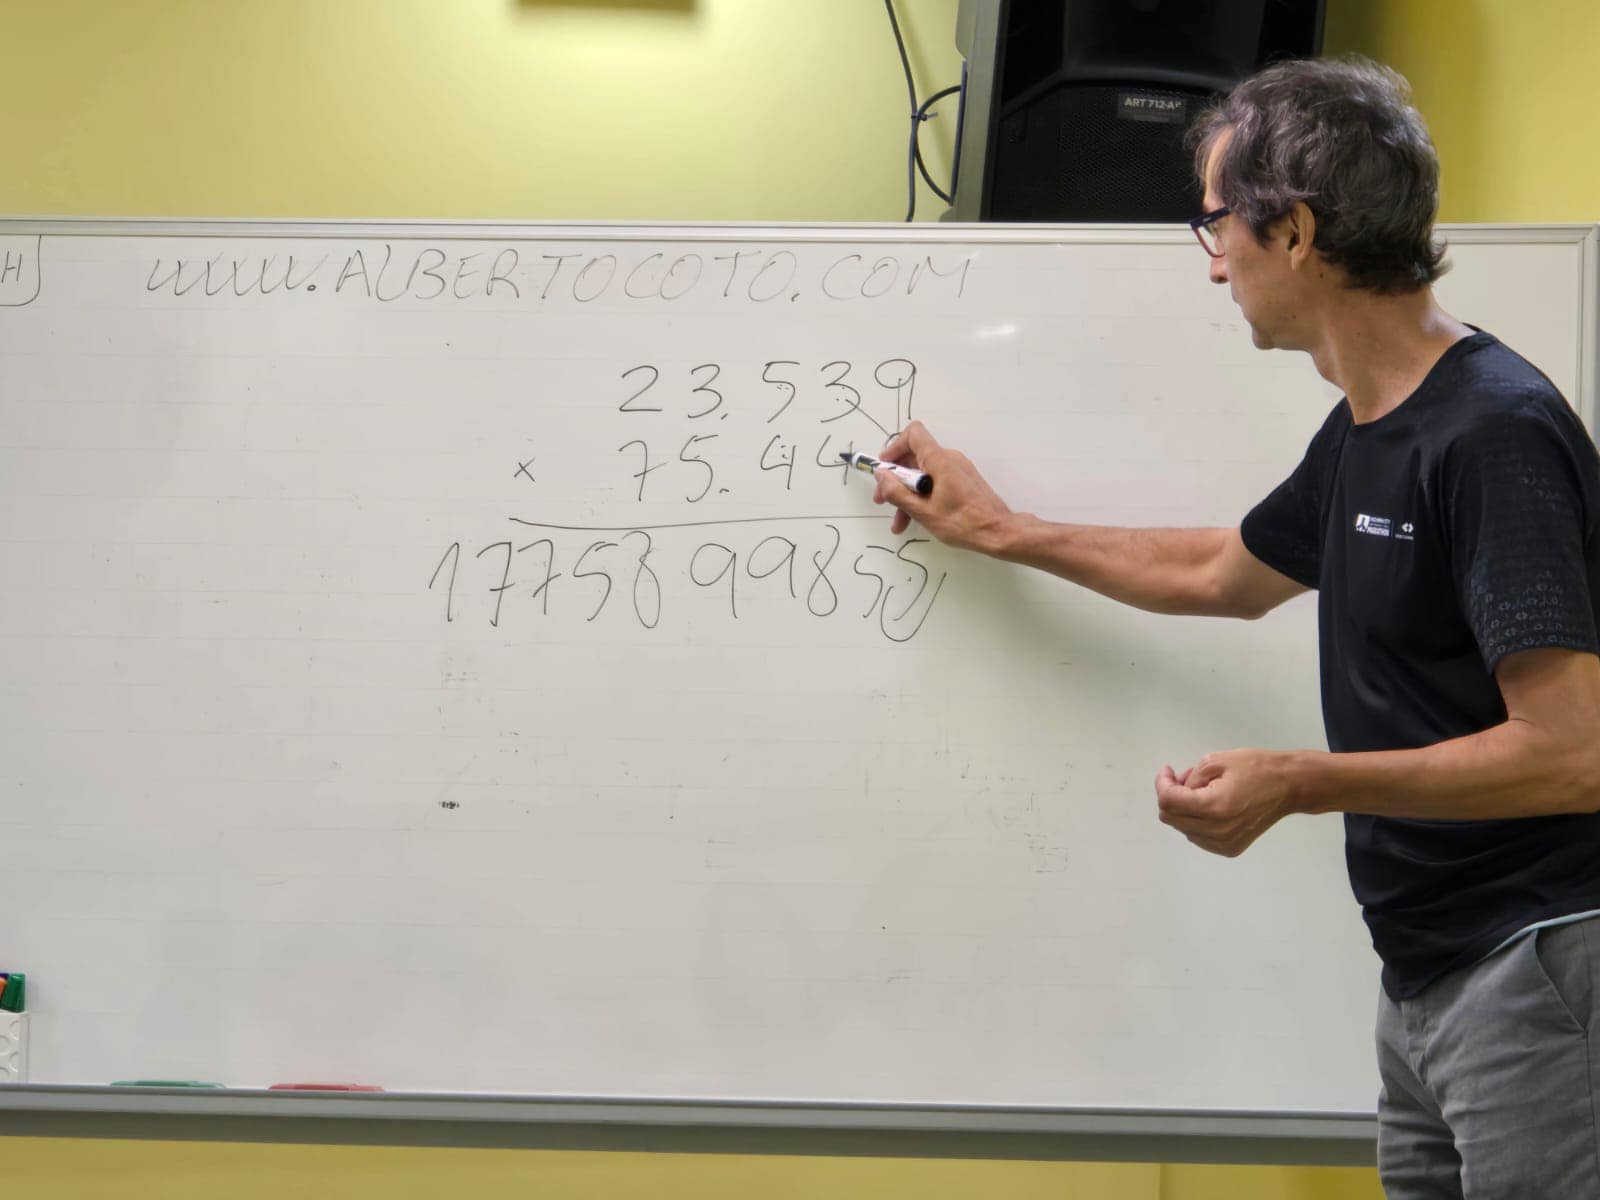 ART 712-A
H
WWW.ALBERTOCOTO.COM
23.539
x 75.44
1775899855
MARATHON